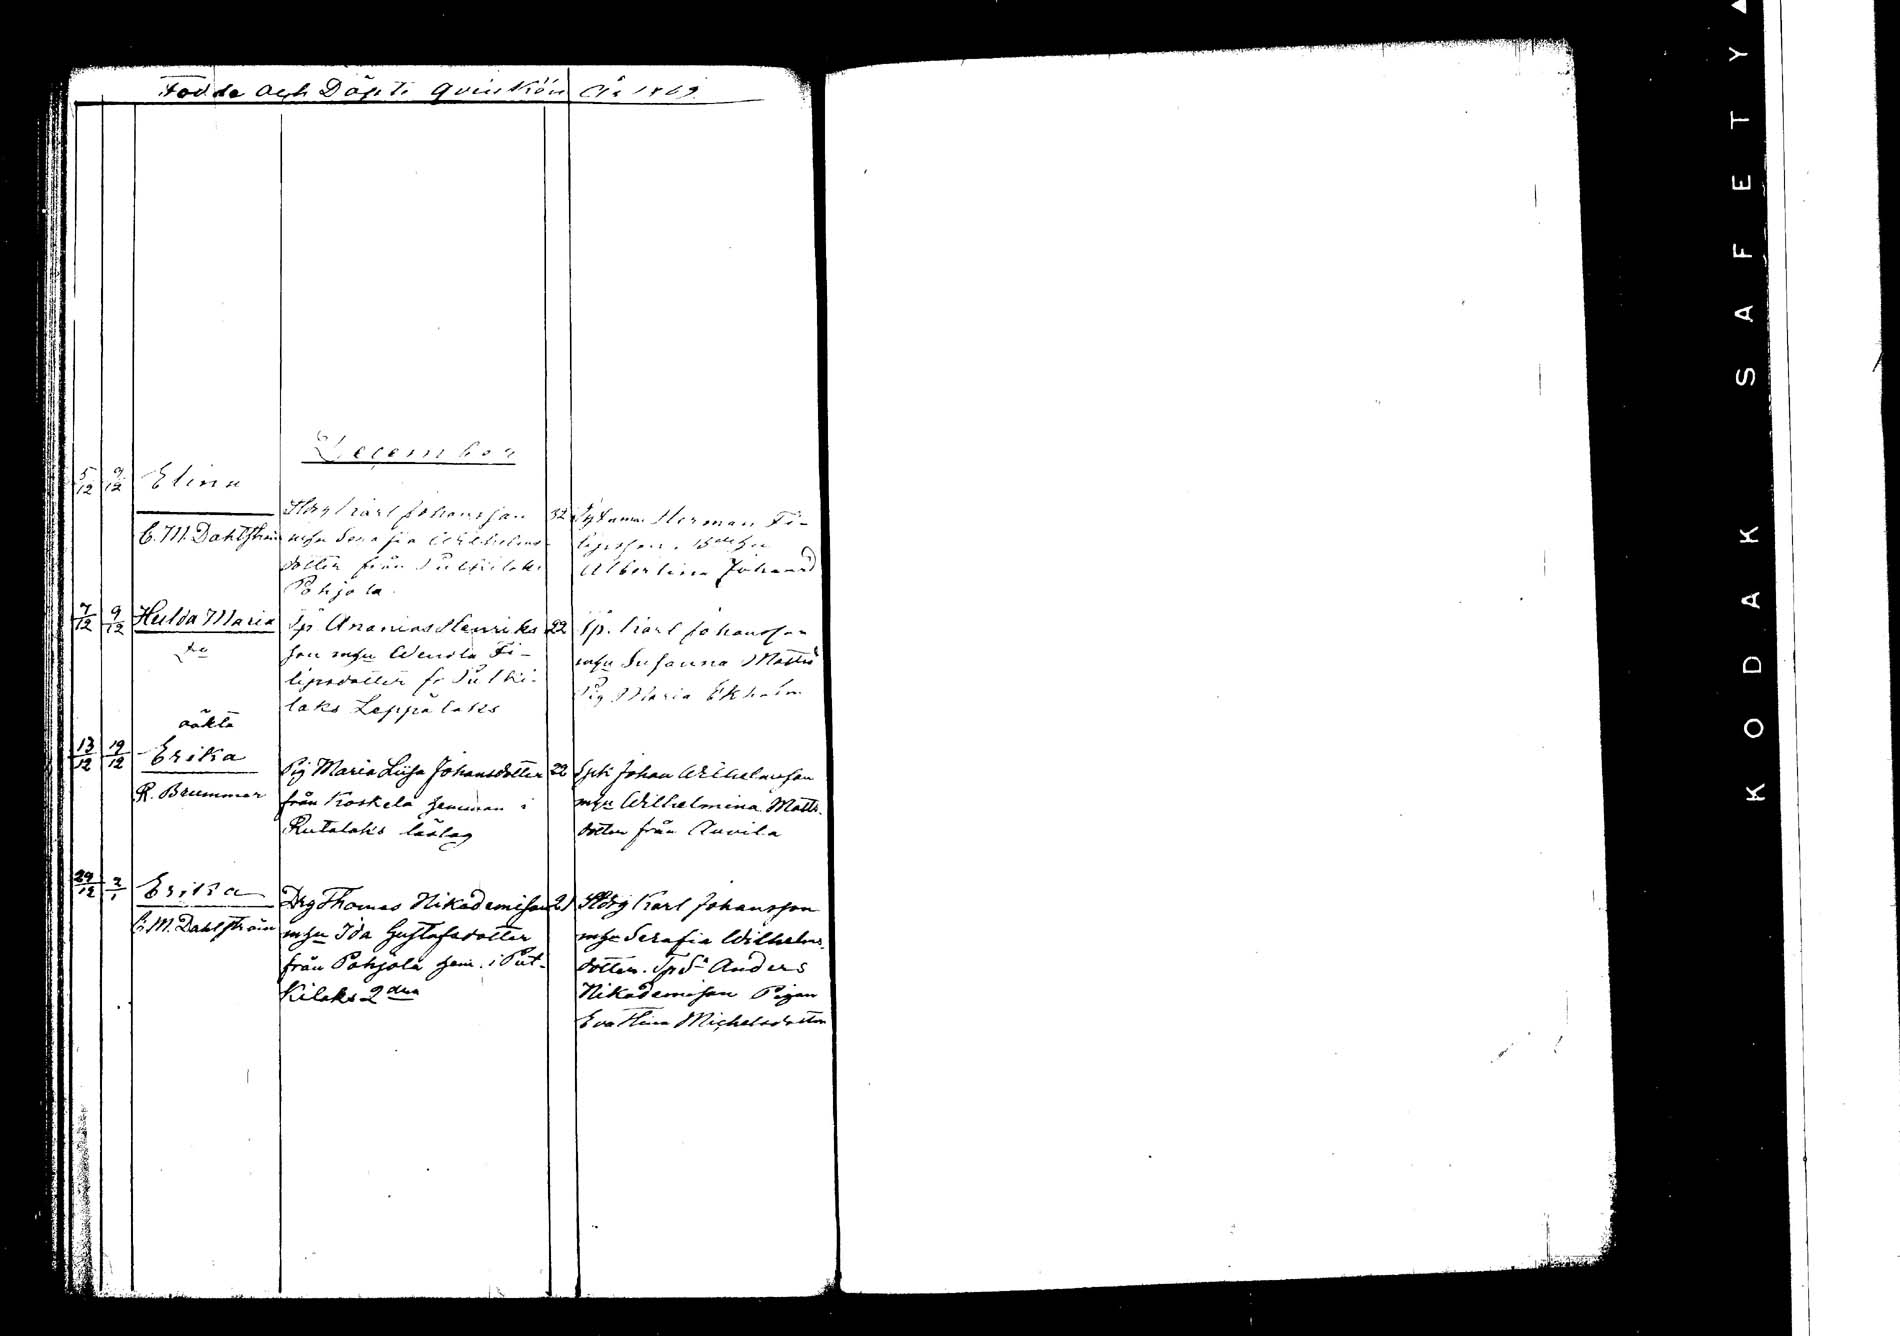 Födde och Döpte Qvinkön År 1869.
December
5/12 9/12 Elina
C. M. Dahlström
Hbrg Karl Johansson 32
mhu Serafia Wilhelms-
dotter från Putkilaks
Pohjola
Herman Fi-
lipsson. Bdehu
Albertina Johansd
7/12 9/12 Hulda Maria
Do
Tp. Ananias Henriks 22
son mhu Wendla Fi-
lipsdotter fr Putki-
laks Leppälaks
Tp. Karl Johansson
mhu Susanna Mattsd
Pig Maria Ekholm
oäkta
13/12 19/12 Erika
R. Brummer
Pig Maria Liisa Johansdotter 22
från Koskela hemman i
Rutalaks läslag
Johan Wilhelmsson
mhu Wilhelmina Matts-
dotter från Auvila
29/12 2/1 Erika
C. M. Dahlström
Drg Thomas Nikodemison 21
mhu Ida Gustafsdotter
från Pohjola hem. i Put-
kilaks 2dra
Hbrg Karl Johansson
mhu Serafia Wilhelms-
dotter. Tp Sn Anders
Nikodemison Pigan
Eva Stina Michelsdotter
KODAK SAFETY